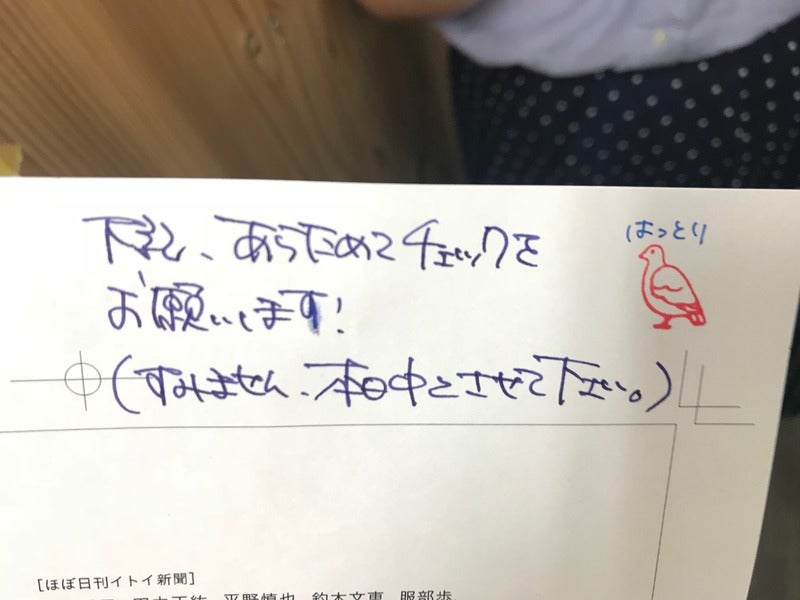 下記、あらためてチェックを
お願いします!
(すみません、本日中とさせて下さい。)
はっとり
[ほぼ日刊イトイ新聞]
平野慎也、釣木文恵、服部歩、